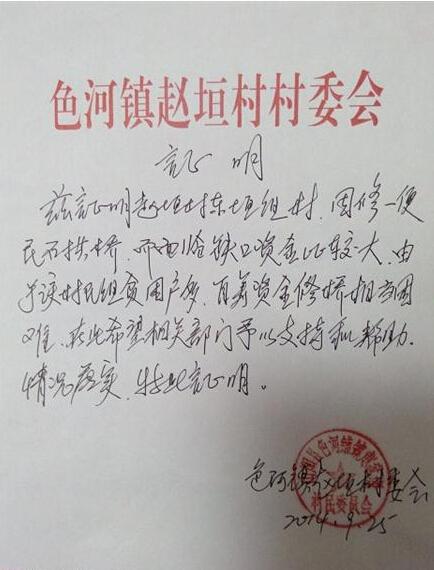 色河镇赵垣村村委会
证明
兹证明赵垣村东垣组村，因修一便
民石拱桥，所面临缺口资金比较大，由
于该村民组贫困户多，自筹资金修桥相当困
难，在此希望相关部门予以支持和帮助。
情况属实，特此证明。
色河镇赵垣村村委会
2014.9.25
色河铺镇
村民委员会